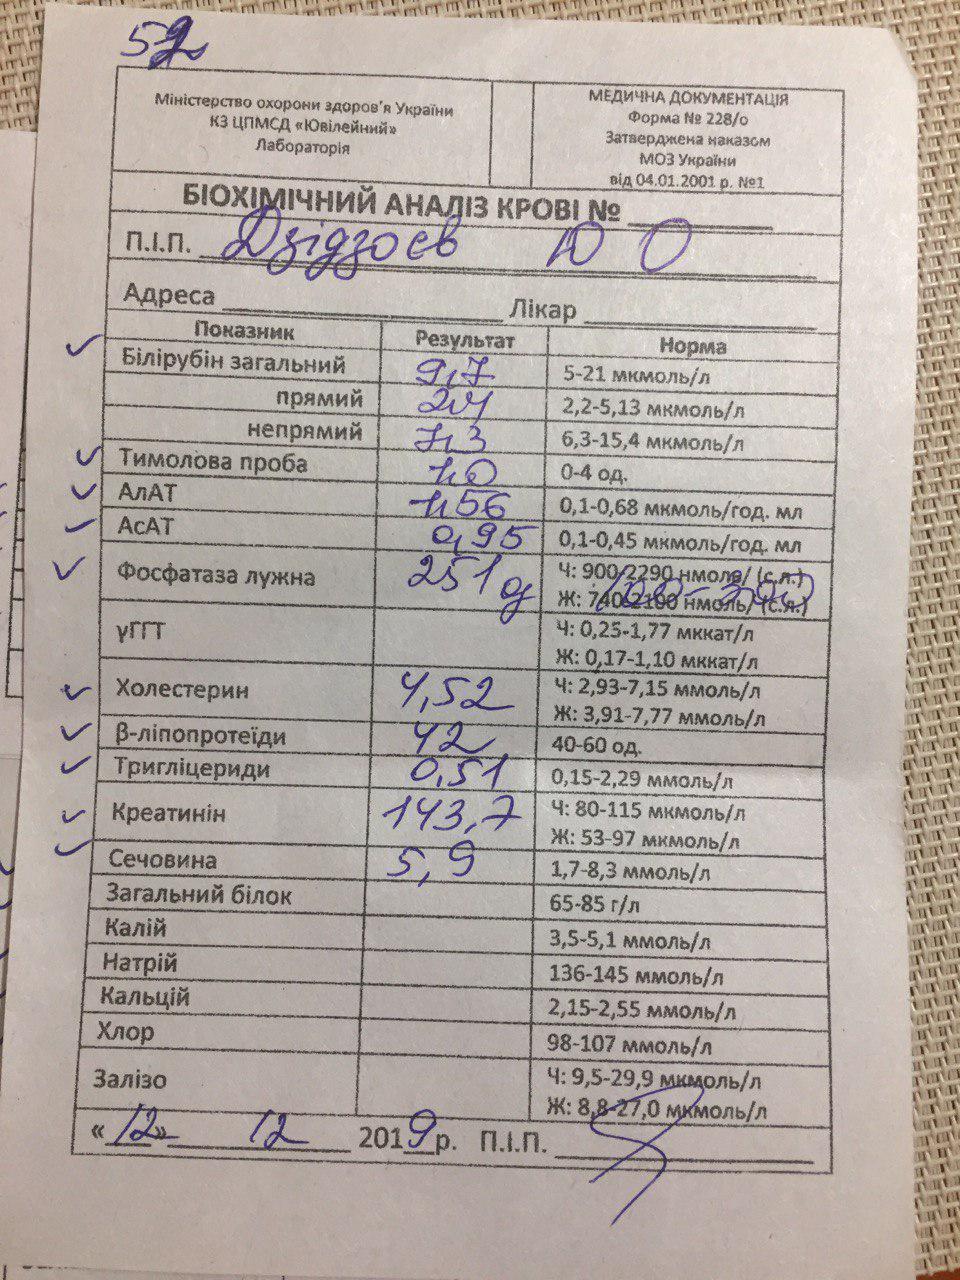 52
Міністерство охорони здоров'я України
КЗ ЦПМСД «Ювілейний»
Лабораторія
МЕДИЧНА ДОКУМЕНТАЦІЯ
Форма № 228/о
Затверджена наказом
МОЗ України
від 04.01.2001 р. №1
БІОХІМІЧНИЙ АНАЛІЗ КРОВІ №
П.І.П. Дзідзоєв Ю О
Адреса Лікар
Показник Результат Норма
Білірубін загальний 9,7 5-21 мкмоль/л
прямий 2,4 2,2-5,13 мкмоль/л
непрямий 7,3 6,3-15,4 мкмоль/л
Тимолова проба 1,0 0-4 од.
АлАТ 1,56 0,1-0,68 мкмоль/год. мл
АсАТ 0,95 0,1-0,45 мкмоль/год. мл
Фосфатаза лужна 251 од Ч: 900-2290 нмоль/ (с.л.)
Ж: 740-2100 нмоль/ (с.л.)
γГГТ Ч: 0,25-1,77 мккат/л
Ж: 0,17-1,10 мккат/л
Холестерин 4,52 Ч: 2,93-7,15 ммоль/л
Ж: 3,91-7,77 ммоль/л
β-ліпопротеїди 42 40-60 од.
Тригліцериди 0,51 0,15-2,29 ммоль/л
Креатинін 143,7 Ч: 80-115 мкмоль/л
Ж: 53-97 мкмоль/л
Сечовина 5,9 1,7-8,3 ммоль/л
Загальний білок 65-85 г/л
Калій 3,5-5,1 ммоль/л
Натрій 136-145 ммоль/л
Кальцій 2,15-2,55 ммоль/л
Хлор 98-107 ммоль/л
Залізо Ч: 9,5-29,9 мкмоль/л
Ж: 8,8-27,0 мкмоль/л
«12» 12 2019р. П.І.П.